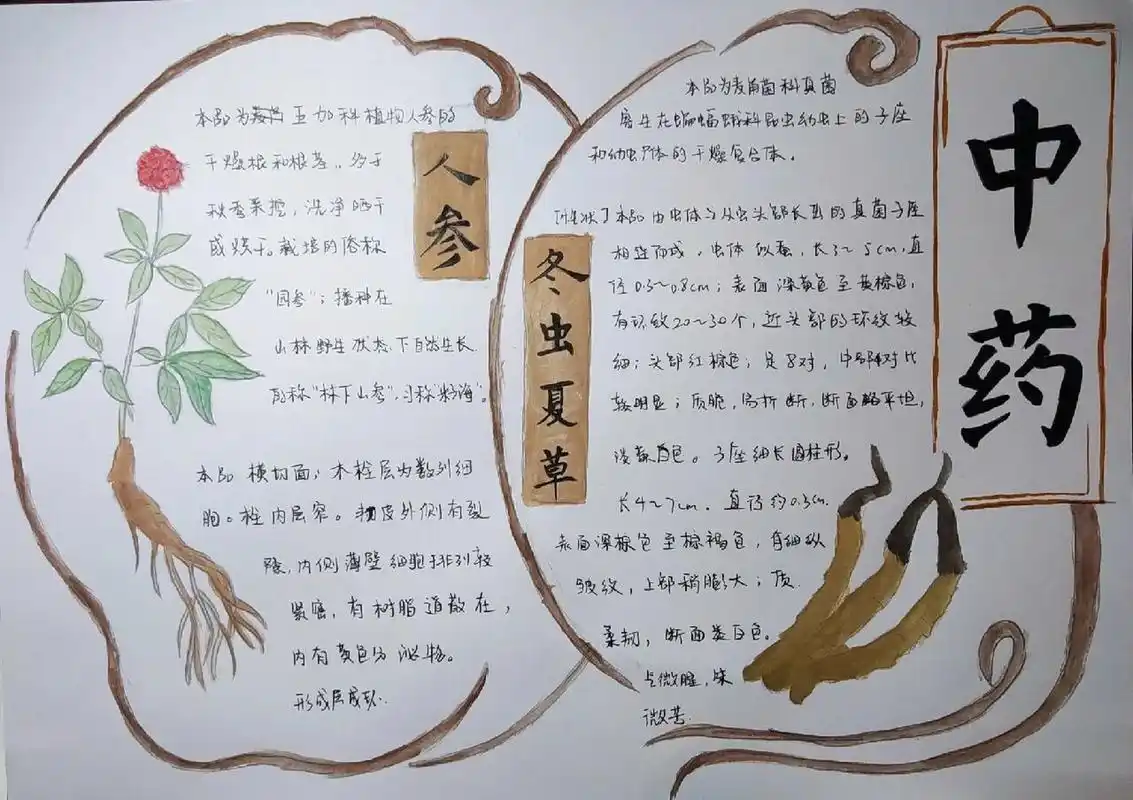 中药
人参
本品为五加科植物人参的
干燥根和根茎。多于
秋季采挖,洗净晒干
或烘干。栽培的俗称
"园参";播种在
山林野生状态下自然生长
的称"林下山参",习称"籽海"。
本品横切面:木栓层为数列细
胞。栓内层窄。韧皮外侧有裂
隙,内侧薄壁细胞排列较
紧密,有树脂道散在,
内有黄色分泌物。
形成层成环.
冬虫夏草
本品为麦角菌科真菌
寄生在蝙蝠蛾科昆虫幼虫上的子座
和幼虫尸体的干燥复合体.
[性状]本品由虫体与从虫头部长出的真菌子座
相连而成,虫体似蚕,长3~5cm,直
径0.3~0.8cm;表面深黄色至黄棕色,
有环纹20~30个,近头部的环纹较
细;头部红棕色;足8对,中部4对比
较明显;质脆,易折断,断面略平坦,
淡黄白色。子座细长圆柱形。
长4~7cm.直径约0.3cm.
表面深棕色至棕褐色,有细纵
皱纹,上部稍膨大;质
柔韧,断面类白色。
气微腥,味
微苦.